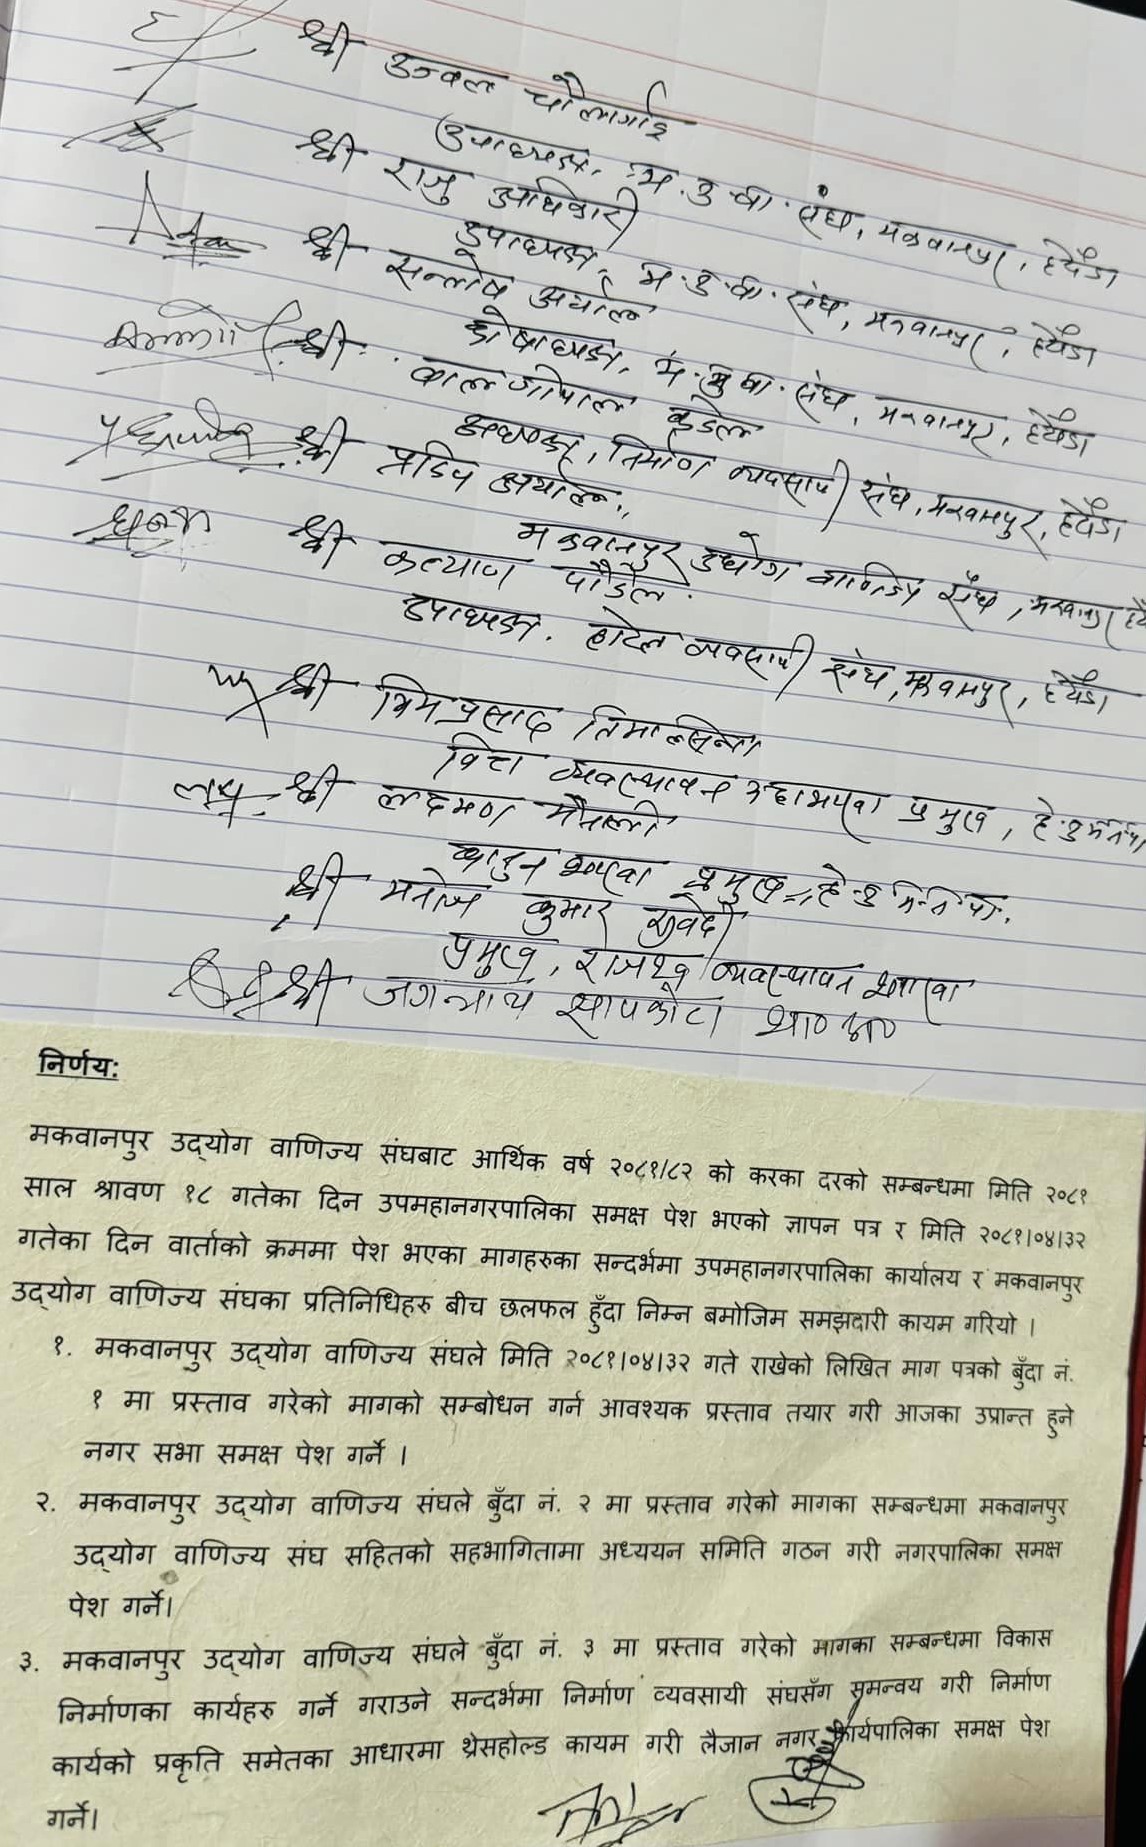 श्री उज्वल चौलागाई
उपाध्यक्ष, म.उ.वा. संघ, मकवानपुर, हेटौंडा
श्री राजु अधिकारी
उपाध्यक्ष, म.उ.वा. संघ, मकवानपुर, हेटौंडा
श्री सन्तोष अर्याल
कोषाध्यक्ष, म.उ.वा. संघ, मकवानपुर, हेटौंडा
श्री बालगोपाल कडेल
अध्यक्ष, निर्माण व्यवसायी संघ, मकवानपुर, हेटौंडा
श्री प्रदिप अर्याल,
मकवानपुर उद्योग वाणिज्य संघ, मकवानपुर
श्री कल्याण पौडेल
उपाध्यक्ष. होटेल व्यवसायी संघ, मकवानपुर, हेटौंडा
श्री भिमप्रसाद तिमल्सिना
वित्त व्यवस्थापन महाशाखा प्रमुख,
लक्ष्म श्री लक्ष्मण मैनाली
कानुन शाखा प्रमुख,
श्री मनोज कुमार सुवेदी
प्रमुख, राजश्व व्यवस्थापन शाखा
श्री जगन्नाथ सापकोटा
निर्णय:
मकवानपुर उद्योग वाणिज्य संघबाट आर्थिक वर्ष २०८१/८२ को करका दरको सम्बन्धमा मिति २०८१
साल श्रावण १८ गतेका दिन उपमहानगरपालिका समक्ष पेश भएको ज्ञापन पत्र र मिति २०८१।०४।३२
गतेका दिन वार्ताको क्रममा पेश भएका मागहरुका सन्दर्भमा उपमहानगरपालिका कार्यालय र मकवानपुर
उद्योग वाणिज्य संघका प्रतिनिधिहरु बीच छलफल हुँदा निम्न बमोजिम समझदारी कायम गरियो ।
१. मकवानपुर उद्योग वाणिज्य संघले मिति २०८१।०४।३२ गते राखेको लिखित माग पत्रको बुँदा नं.
१ मा प्रस्ताव गरेको मागको सम्बोधन गर्न आवश्यक प्रस्ताव तयार गरी आजका उप्रान्त हुने
नगर सभा समक्ष पेश गर्ने ।
२. मकवानपुर उद्योग वाणिज्य संघले बुँदा नं. २ मा प्रस्ताव गरेको मागका सम्बन्धमा मकवानपुर
उद्योग वाणिज्य संघ सहितको सहभागितामा अध्ययन समिति गठन गरी नगरपालिका समक्ष
पेश गर्ने।
३. मकवानपुर उद्योग वाणिज्य संघले बुँदा नं. ३ मा प्रस्ताव गरेको मागका सम्बन्धमा विकास
निर्माणका कार्यहरु गर्ने गराउने सन्दर्भमा निर्माण व्यवसायी संघसँग समन्वय गरी निर्माण
कार्यको प्रकृति समेतका आधारमा थ्रेसहोल्ड कायम गरी लैजान नगर कार्यपालिका समक्ष पेश
गर्ने।